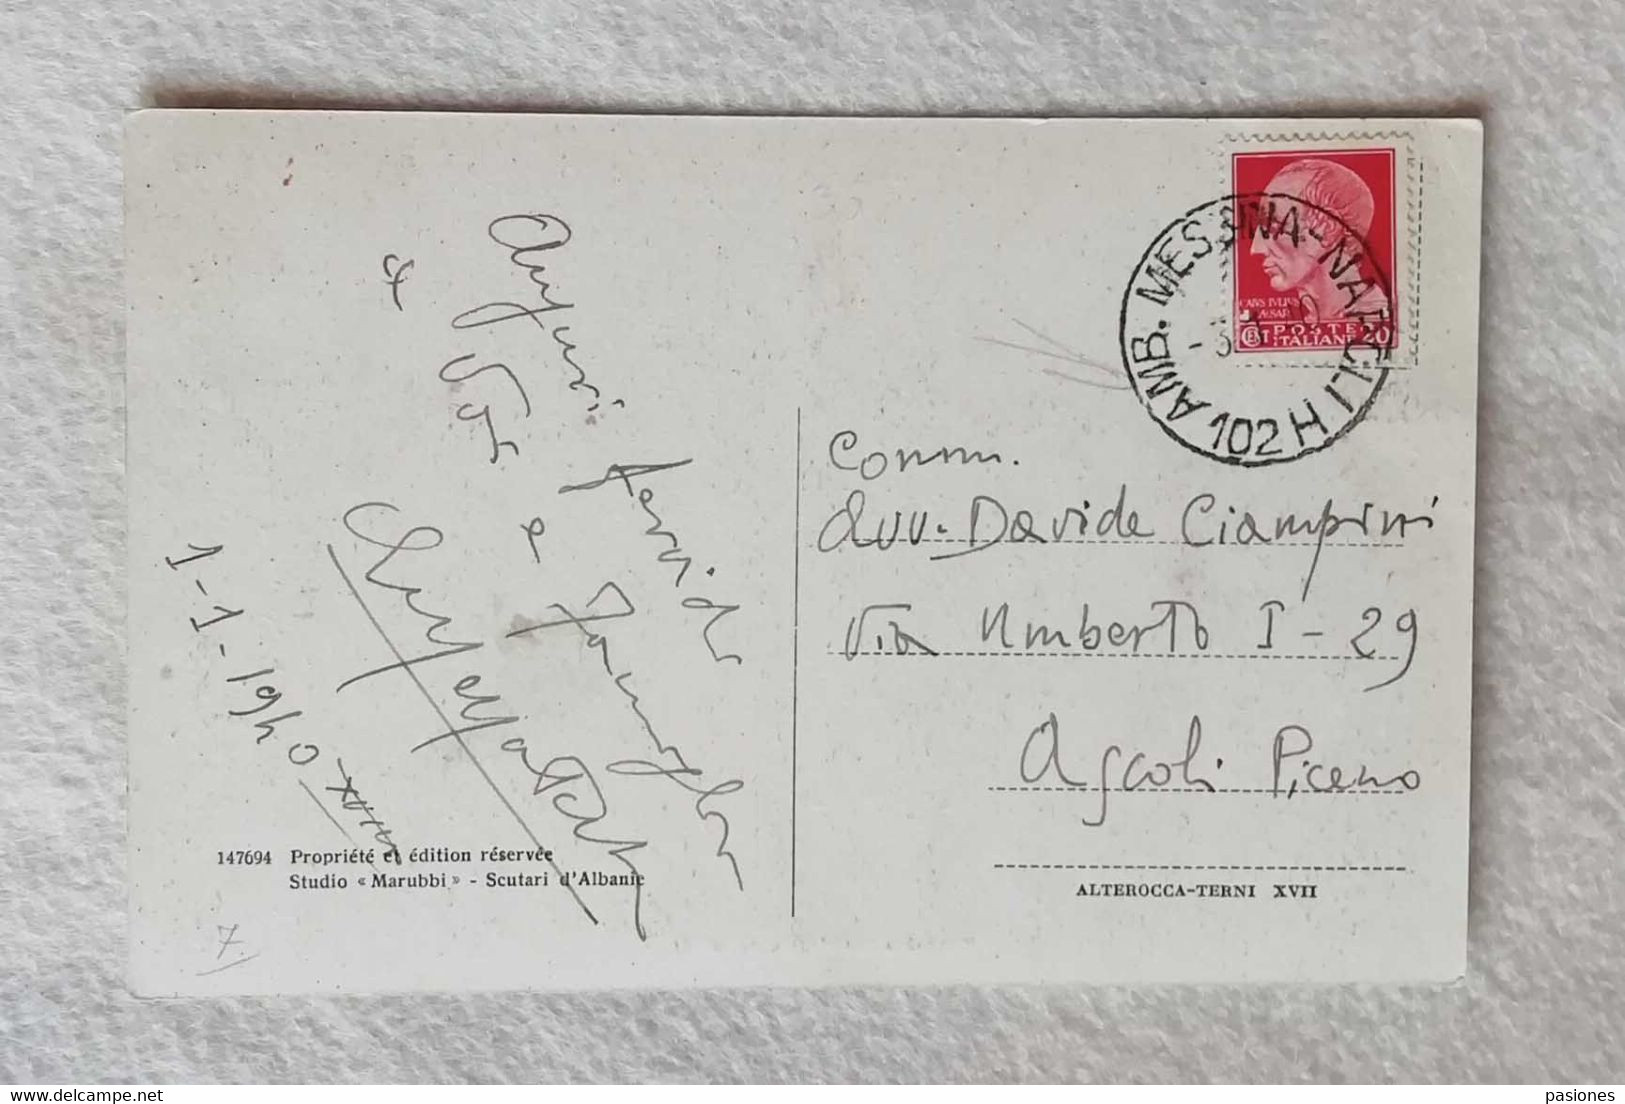 Auguri fervidi
a Voi e famiglia
1-1-1940 XVIII
147694 Propriété et édition réservée
Studio « Marubbi » - Scutari d'Albanie
7.
AMB. MESSINA-NAPOLI
102 H
CAIVS IVLIVS
CAESAR
POSTE
ITALIANE
20
Comm.
Avv. Davide Ciampini
Via Umberto I - 29
Ascoli Piceno
ALTEROCCA-TERNI XVII
www.delcampe.net
pasiones